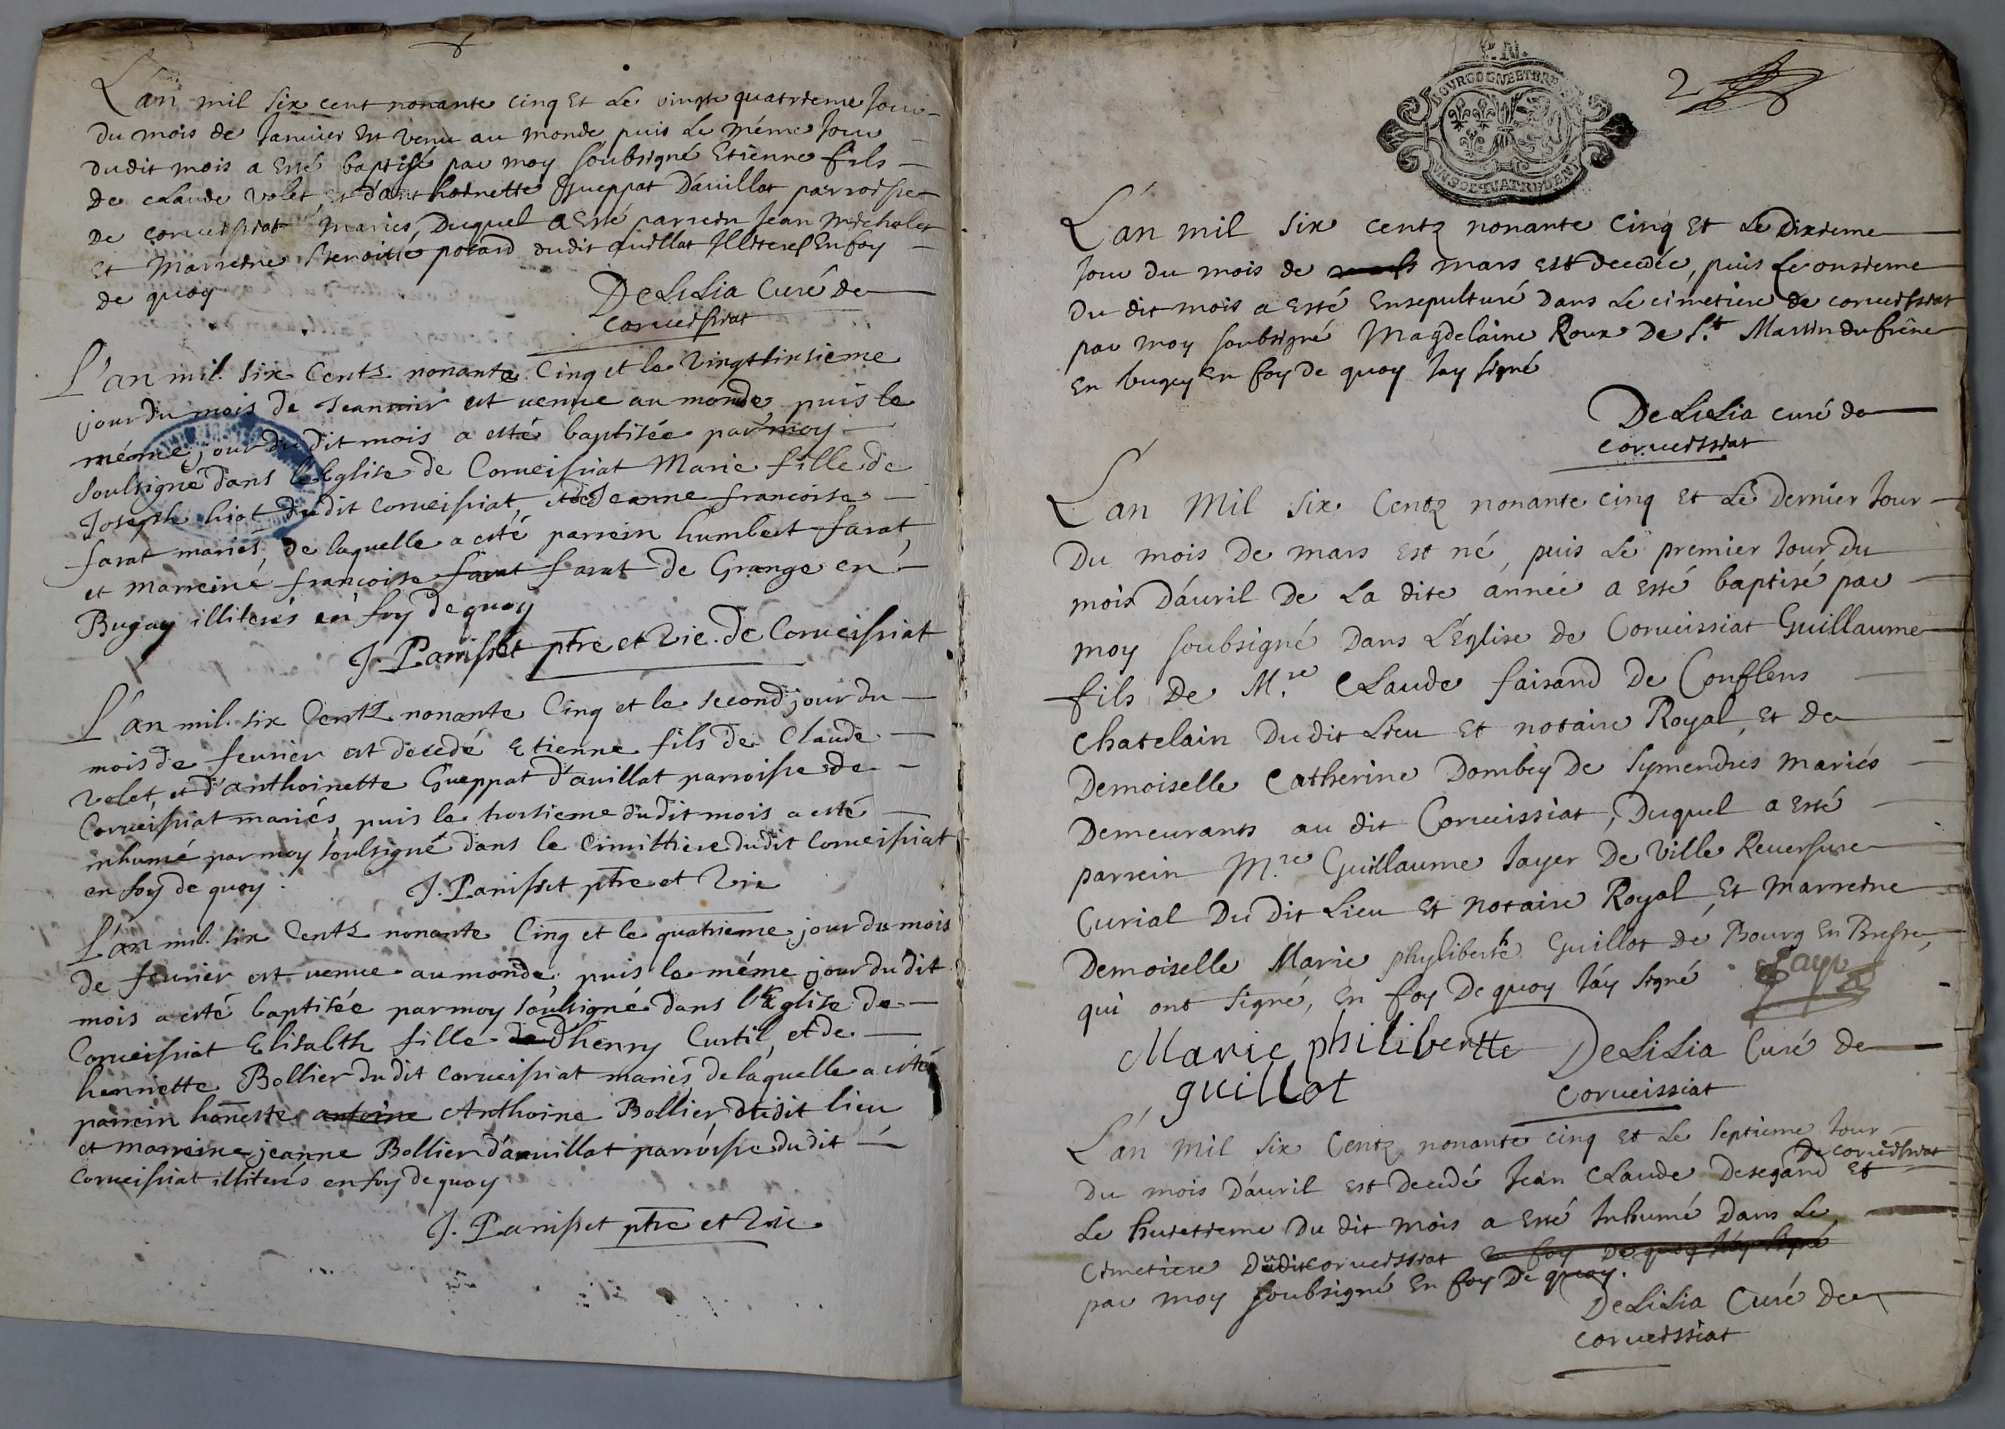 L'an mil six cent nonante cinq et le vingt quatrieme jour
du mois de janvier est venu au monde puis le méme jour
dudit mois a esté baptisé par moy soubsigné Etienne fils
de claude volet, et d'anthoinette Gueppat D'auillat parroisse
de corueissiat mariés, Duquel a esté parrein jean michalet
et marreine Benoitte potard dudit auillat Illiteres En foy
de quoy
DeLiLia Curé de
corueissiat
L'an mil. six Cents nonante Cinq et le vingtsixsieme
jour du mois de Jeanuier est uenue au monde, puis le
méme jour du dit mois a esté baptisée par moy
soulsigné dans l'eglise de Corueissiat Marie fille de
Joseph hiot dudit corueissiat, et de Jeanne francoise
farat mariés, de laquelle a esté parrein humbert farat,
et marreine francoise farat farat de Grange en
Bugay illiterés en foy de quoy
J. Panisset ptre et vic. de Corueissiat
L'an mil. six Cents nonante Cinq et le second jour du
mois de feurier est decedé Etienne fils de Claude
volet, et d'anthoinette Gueppat d'auillat parroisse de
Corueissiat mariés, puis le troisieme dudit mois a esté
inhumé par moy soulsigné dans le Cimittiere dudit Corueissiat
en foy de quoy.
J. Panisset ptre et vic
L'an mil. six Cents nonante Cinq et le quatrieme jour du mois
de feurier est uenue au monde, puis le méme jour du dit
mois a esté baptisée par moy soulsigné dans l'Eglise de
Corueissiat Elisabth fille de D'henry Curtil, et de
henriette Bollier du dit corueissiat mariés, de laquelle a esté
parrein honeste antoine Anthoine Bollier dudit lieu
et marreine jeanne Bollier d'auuillat parroisse du dit
Corueissiat illiterés en foy de quoy
J. Panisset ptre et vic
2
L'an mil six centz nonante Cinq et Le Dixieme
jour du mois de mars est decedée, puis Le onsieme
du dit mois a esté Ensepulturé Dans Le cimetiere de corueissiat
par moy soubsigné Magdelaine Roux De St. Martin du frêne
en bugey en foy de quoy Jay signé
DeLiLia curé de
corueissiat
L'an Mil six Centz nonante cinq et Le Dernier Jour
Du mois De mars est né, puis Le premier jour Du
mois D'auril De La dite année a esté baptisé par
moy soubsigné Dans L'Eglise de Corueissiat Guillaume
fils de M.re Claude faisand De Conflens
Chatelain Du dit Lieu et notaire Royal, et de
Demoiselle Catherine Dombey De Symendres mariés
Demeurants au dit Corueissiat, Duquel a esté
parrein M.re Guillaume Jayer De Ville Reuersure
Curial Du Dit Lieu et notaire Royal, et marreine
Demoiselle Marie phyliberte Guillot de Bourg En Bresse,
qui ont signé, en foy De quoy Jáy signé
Marie philibertte DeLiLia Curé de
guillot corueissiat
L'an mil six Centz nonante cinq et Le septieme Jour
De corueissiat
Du mois D'auril est Decedé Jean Claude Desegand et
Le huitieme Du dit mois a esté Inhumé Dans Le
Cimetiere Dudit corueissiat en foy de quoy Jay signé
par moy soubsigné En foy De quoy.
DeLiLia Curé De
corueissiat